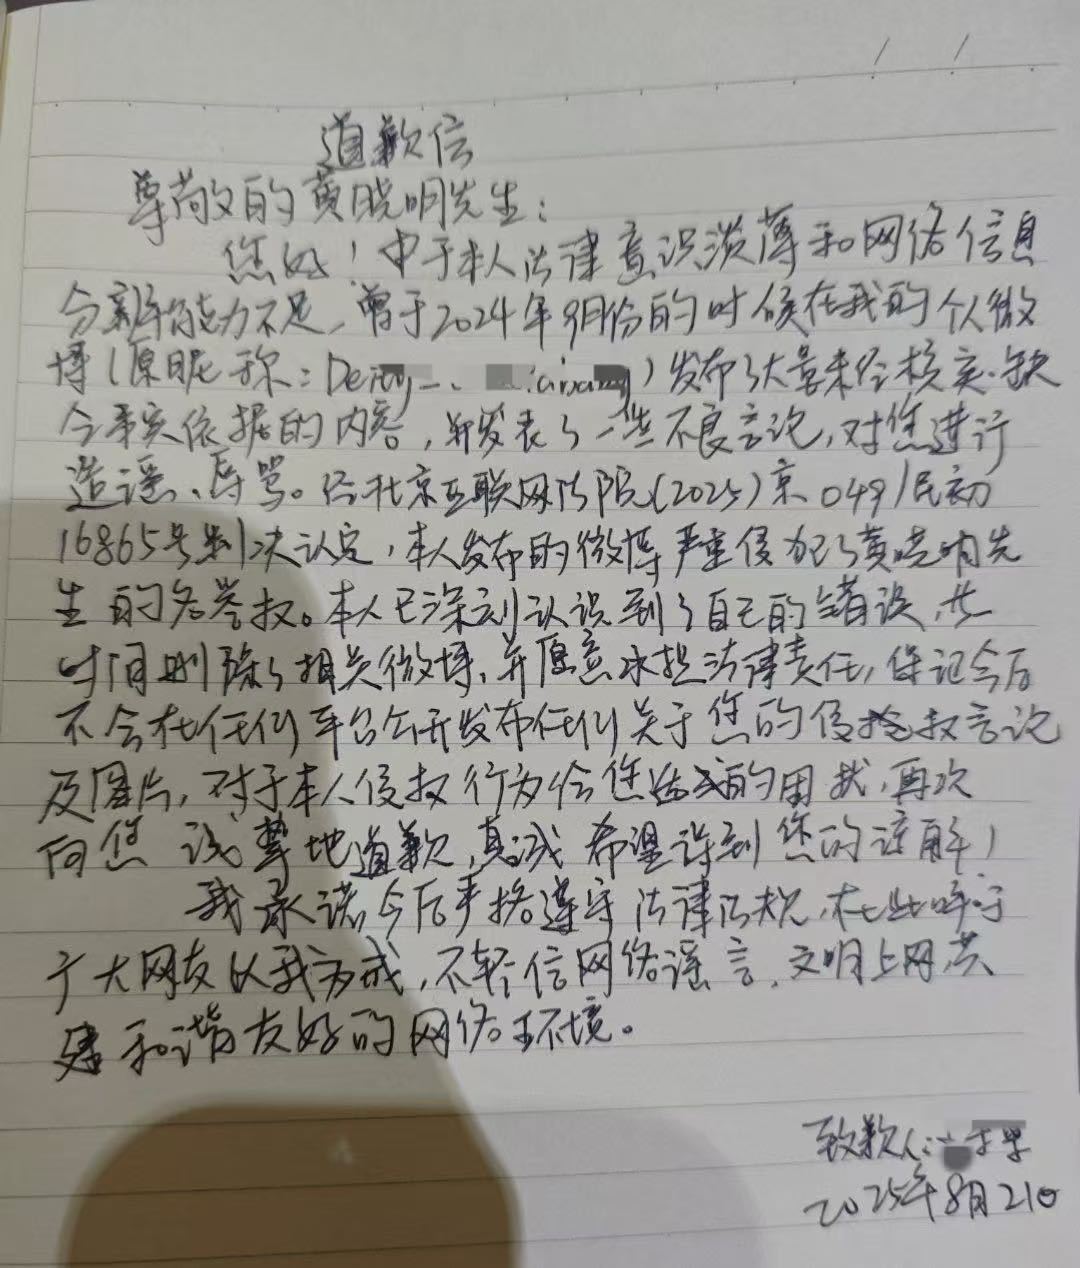 道歉信
尊敬的黄晓明先生：
您好！由于本人法律意识淡薄和网络信息
分辨能力不足，曾于2024年9月份的时候在我的个人微
博（原昵称：Deity_）发布了大量未经核实、缺
令事实依据的内容，并发表了一些不良言论，对您进行
造谣、辱骂。经北京互联网法院（2025）京0491民初
16865号判决认定，本人发布的微博严重侵犯了黄晓明先
生的名誉权。本人已深刻认识到了自己的错误，
时间删除了相关微博，并愿意承担法律责任，保证今后
不会在任何平台公开发布任何关于您的侵权言论
及图片，对于本人侵权行为给您造成的困扰，再次
向您诚挚地道歉，真诚希望得到您的谅解！
我承诺今后严格遵守法律法规，在此呼吁
广大网友以我为戒，不轻信网络谣言，文明上网，共
建和谐友好的网络环境。
致歉人：
2025年8月21日